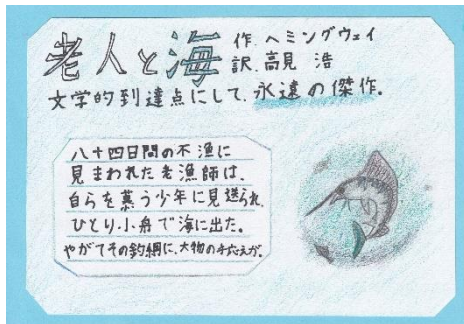 老人と海
作.ヘミングウェイ
訳.高見 浩
文学的到達点にして、永遠の傑作。
八十四日間の不漁に
見まわれた老漁師は、
自らを慕う少年に見送られ、
ひとり小舟で海に出た。
やがてその釣綱に、大物の手応えが。